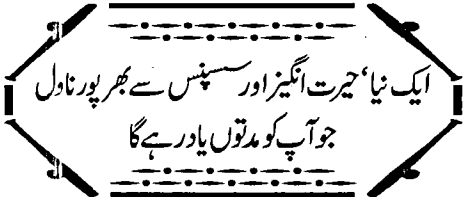 ایک نیا‘ حیرت انگیز اور سسپنس سے بھرپور ناول
جو آپ کو مدتوں یاد رہے گا